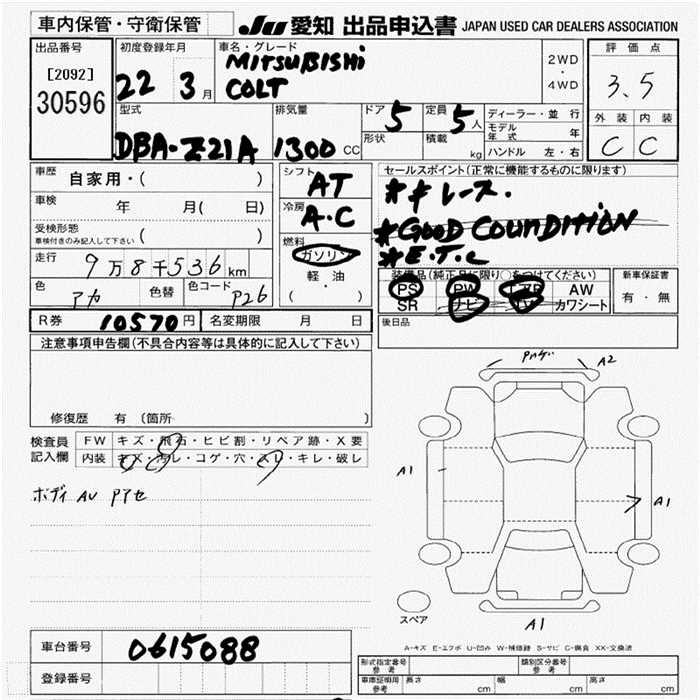 車内保管・守衛保管
JU 愛知 出品申込書 JAPAN USED CAR DEALERS ASSOCIATION
出品番号 初度登録年月 車名・グレード 評価点
[2092] 30596
22 3月
MITSUBISHi
COLT
2WD・4WD
3.5
外装 内装
C C
型式 排気量 ドア 5 定員 5人
DBA-Z21A 1300 CC
形状 積載 kg
ディーラー・並行
モデル年式 年
ハンドル 左・右
車歴 自家用・( )
シフト AT
セールスポイント(正常に機能するものに限ります)
*キレース.
*GOOD COUNDITION
*E.T.C
車検 年 月( 日)
冷房 A.C
受検形態 ( )
車検付きのみ記入して下さい
燃料 ガソリン
軽・油
( )
走行 9万8千536km
色 アカ 色替 色コード P26
装備品(純正品に限り○をつけてください) 新車保証書
PS PW エアB AW 有・無
SR ナビ TV カワシート
R券 10570円 名変期限 月 日
後日品
注意事項申告欄(不具合内容等は具体的に記入して下さい)
修復歴 有 (箇所 )
検査員記入欄
FW キズ・飛石・ヒビ割・リペア跡・X要
内装 キズ・汚レ・コゲ・穴・スレ・キレ・破レ
ボディ AU PアセA2
A1
A1
A1
スペア
A-キズ E-エクボ U-凹み W-補修跡 S-サビ C-腐食 XX-交換済
車台番号 0615088
登録番号
型式指定番号 参考 類別区分番号 参考
車庫証明用 参考 長さ cm 幅 cm 高さ cm